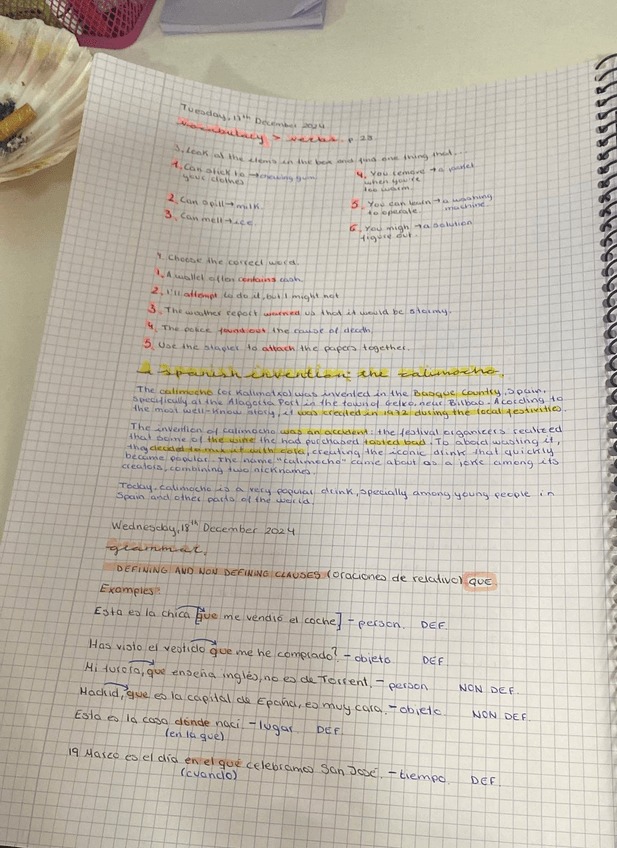 Tuesday, 17th December 2024
Vocabulary > verbs. p. 23.
3. Look at the items in the box and find one thing that...
1. Can stick to → chewing gum
your clothes
2. Can spill → milk.
3. Can melt → ice.
4. You remove → a jacket
when you're
too warm.
5. You can learn → a washing
to operate. machine.
6. You migh → a solution
figure out.
4. Choose the correct word.
1. A wallet often contains cash.
2. I'll attempt to do it, but I might not
3. The weather report warned us that it would be stormy.
4. The police found out the cause of death.
5. Use the stapler to attach the papers together.
A Spanish invention: the calimocho.
The calimocho (or Kalimotxo) was invented in the Basque Country, Spain,
specifically at the Port in the town of Getxo, near Bilbao. Acording to
the most well-know story, it was created in 1972 during the local festivities.
The invention of calimocho was an accident: the festival organicers realised
that some of the wine the had purchased tasted bad. To aboid wasting it,
they decided to mix it with cola, creating the iconic drink that quickly
became popular. The name "calimocho" came about as a joke among its
creators, combining two nicknames.
Today, calimocho is a very popular drink, specially among young people in
Spain and other parts of the world.
Wednesday, 18th December 2024
grammar.
DEFINING AND NON DEFINING CLAUSES (oraciones de relativo) QUE
Examples:
Esta es la chica [que me vendió el coche] - person. DEF.
Has visto el vestido que me he comprado? - objeto DEF.
Mi que enseña inglés, no es de Torrent. - person NON DEF.
Madrid, que es la capital de Epaña, es muy cara. - objeto NON DEF.
Esta es la casa dónde nací. - lugar. DEF.
(en la que)
19 Marzo es el día en el que celebramos San José. - tiempo. DEF.
(cuando)